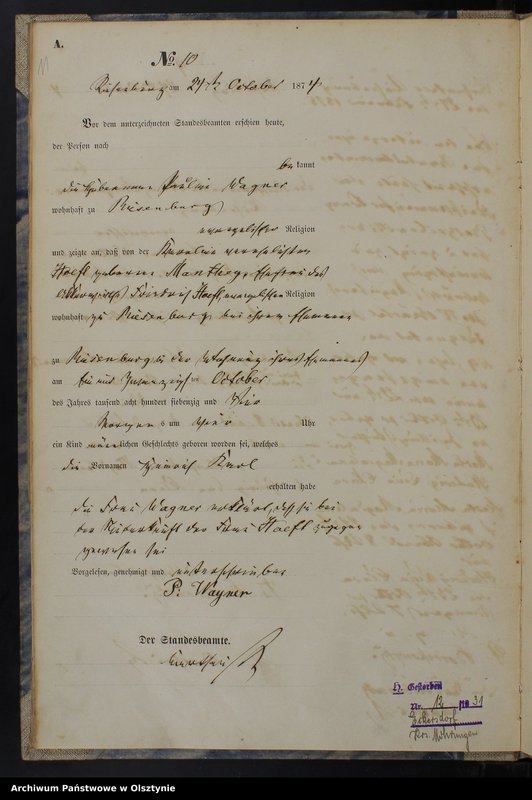 A.
11
No. 10
Riesenburg am 24ten October 1874
Vor dem unterzeichneten Standesbeamten erschien heute,
der Person nach
bekannt
die Hebamme Pauline Wagner
wohnhaft zu Riesenburg
evangelischer Religion
und zeigte an, daß von der Karoline verehelichten
Hoeft geborene Manthey, Ehefrau des
Friedrich Hoeft, evangelischer Religion
wohnhaft zu Riesenburg bei ihrem Ehemanne
zu Riesenburg in der Wohnung ihres Ehemannes
am ein und zwanzigsten October
des Jahres tausend acht hundert siebenzig und vier
Morgens um Uhr
ein Kind männlichen Geschlechts geboren worden sei, welches
die Vornamen Heinrich Karl
erhalten habe
die Frau Wagner erklärt, daß sie bei
der Niederkunft der Frau Hoeft zugegen
gewesen sei
Vorgelesen, genehmigt und unterschrieben
P. Wagner
Der Standesbeamte.
H. Gestorben
Nr. 12 1931
Eckersdorf
Krs. Mohrungen
Archiwum Państwowe w Olsztynie